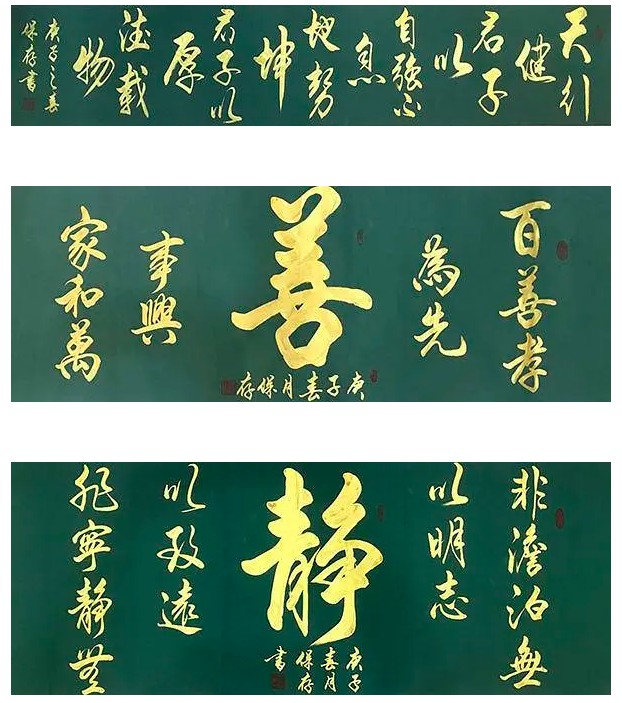 天行
健
君子
以
自强不
息
地势
坤
君子以
厚
德載
物
庚子之春
保存書
百善孝
為先
善
庚子春月保存
家和萬
事興
非澹泊無
以明志
静
庚子
春月
保存
書
非寧静無
以致遠